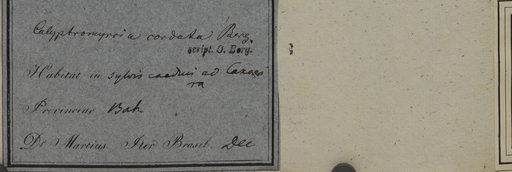 Calyptromyrcia cordata Berg.
script. O. Berg.
Habitat in sylvis caeduis ad
Provinciae Bah.
Dr Martius. Iter Brasil. Dec